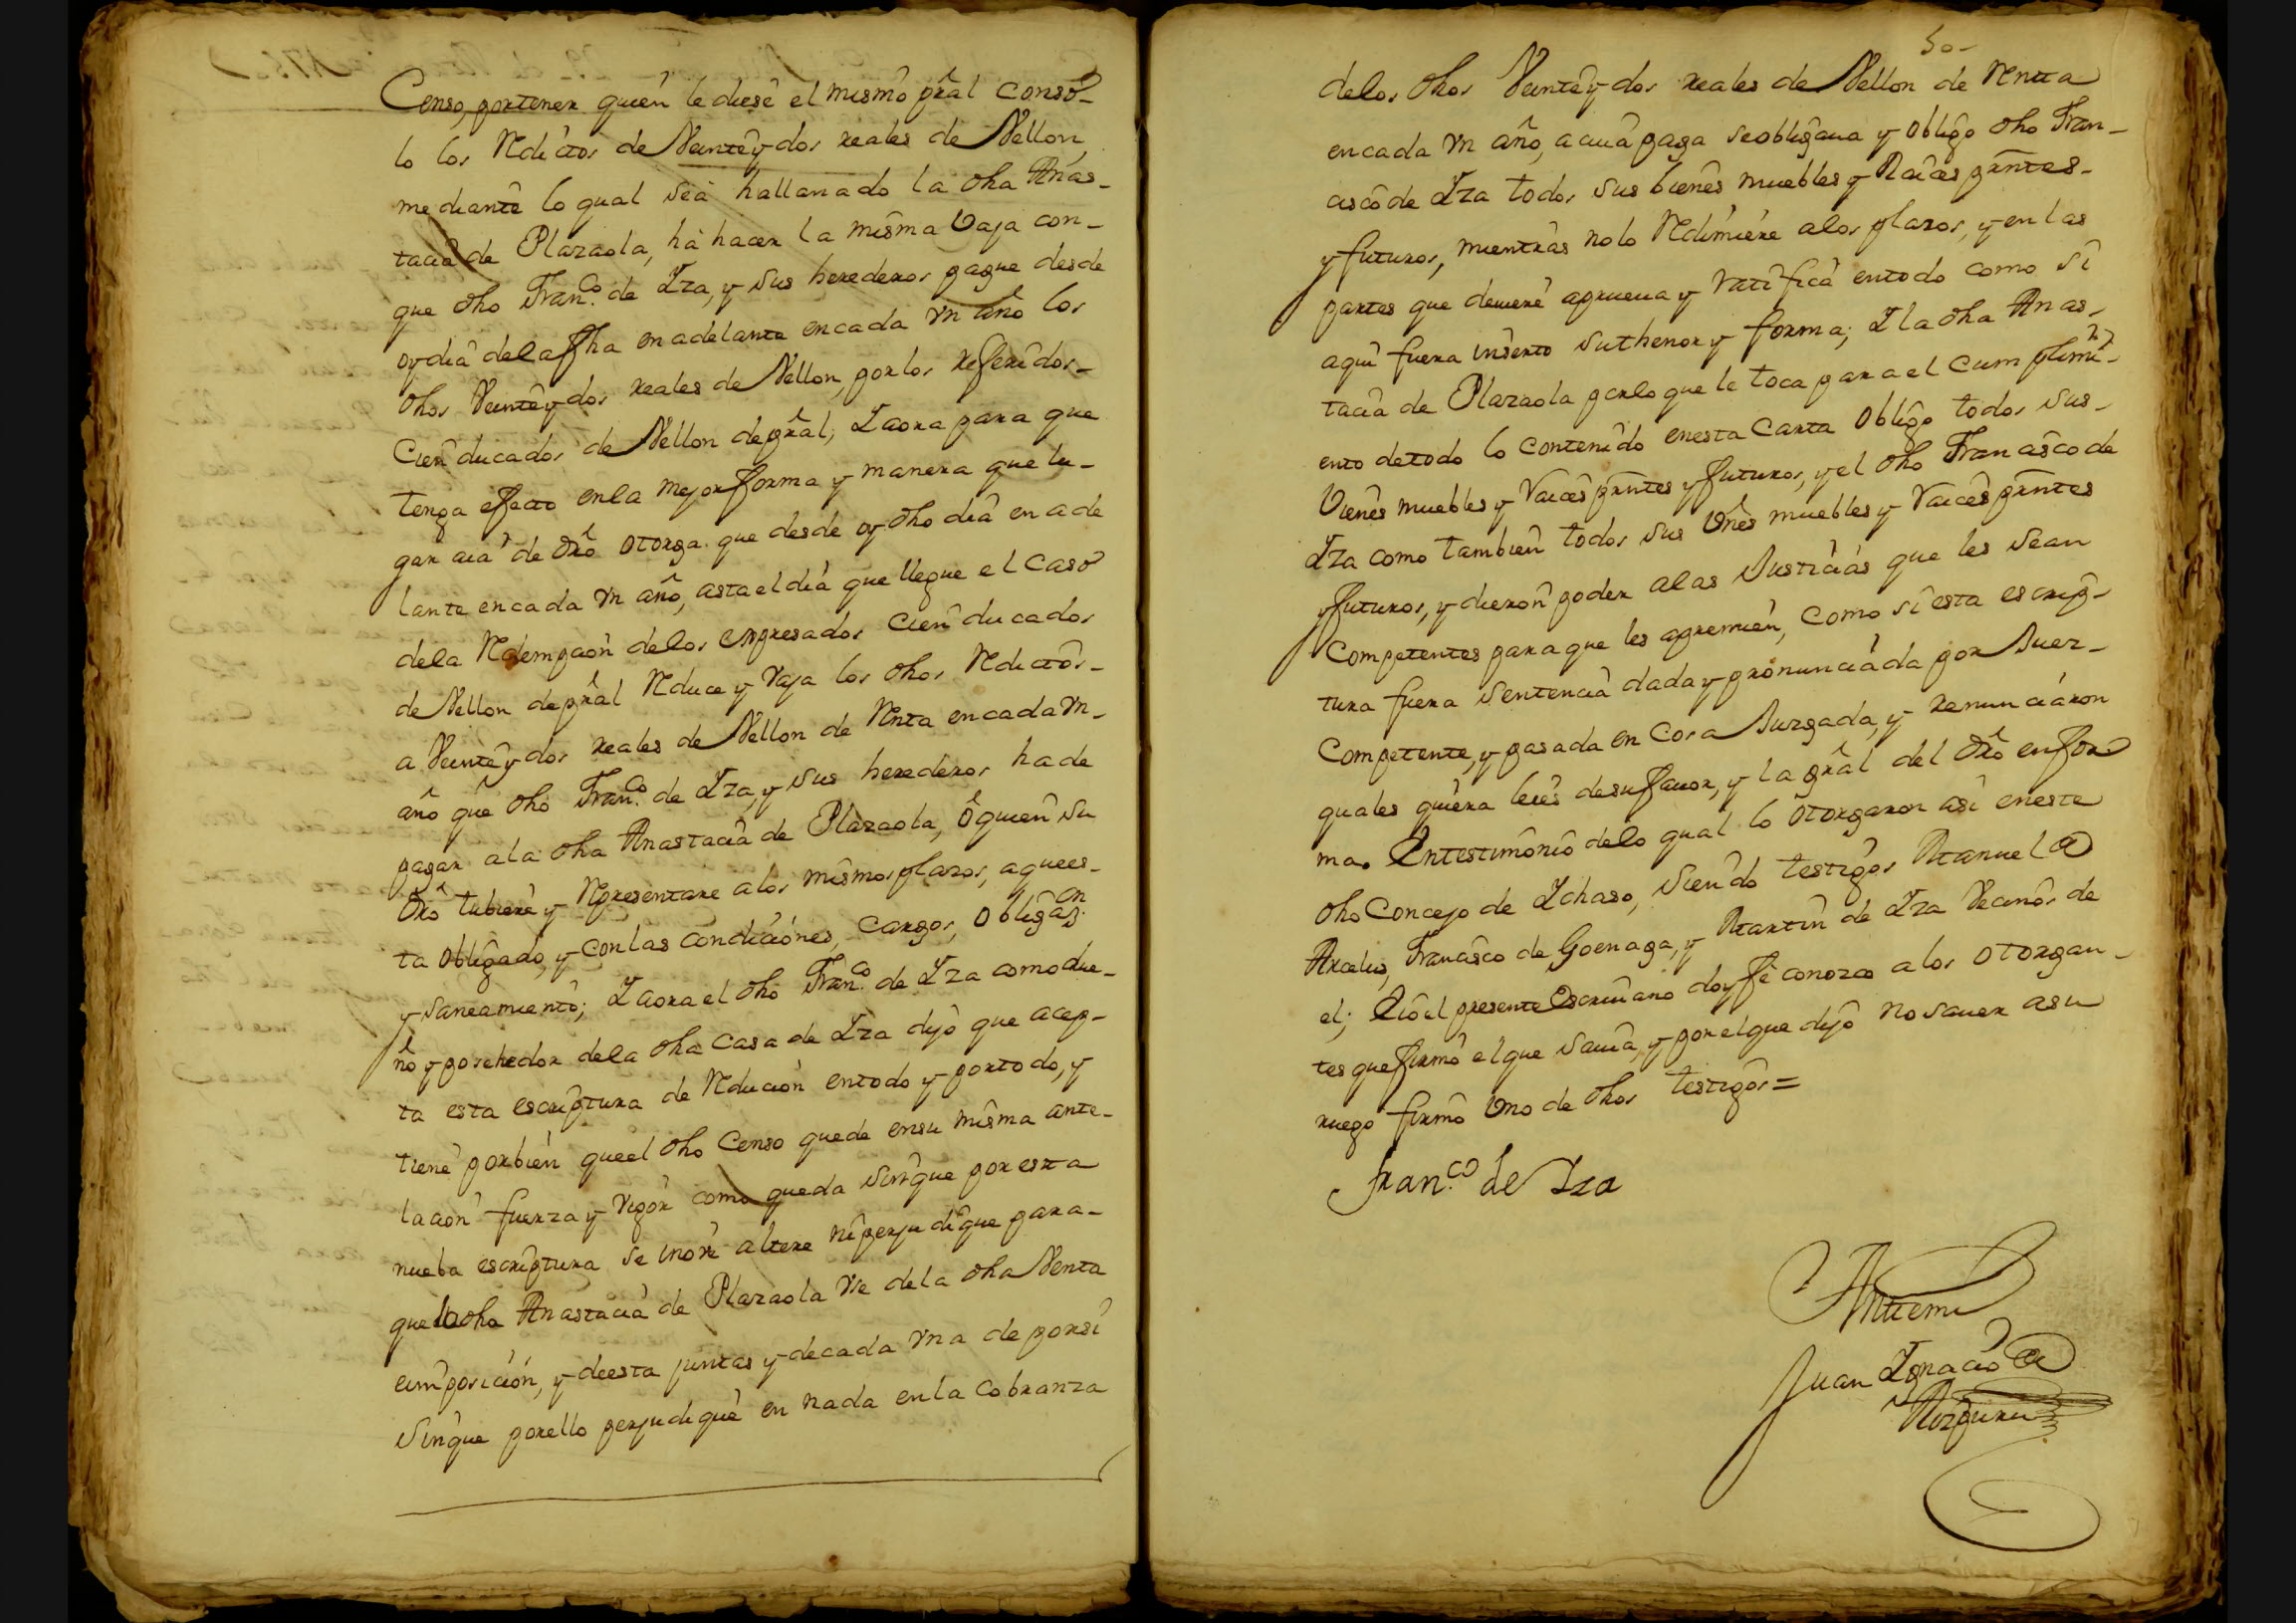 Censo, por tener quien le diese el mismo pral con so-
lo los Reditos de Veinte y dos reales de Vellon,
mediante lo qual sea hallanado la dha Anas-
tacia de Plazaola, hà hacer la misma vaja con-
que dho Franco. de Yza, y sus herederos pague desde
oy dia de la fha en adelante en cada vn año los
dhos Veinte y dos reales de Vellon, por los referidos-
Cien ducados de Vellon de pral; Y aora para que
tenga efecto en la mejor forma y manera que lu-
gar aia de dro otorga que desde oy dho dia en ade
lante en cada vn año, asta el dia que llegue el caso
de la Redempcion de los expresados cien ducados
de Vellon de pral Reduce y vaja los dhos Reditos-
a Veinte y dos reales de Vellon de Renta en cada vn-
año que dho Franco. de Yza, y sus herederos ha de
pagar a la dha Anastacia de Plazaola, ò quien su
dro tubiere y Representare a los mismos plazos, a que es-
ta obligado, y con las condiciones, cargos, obligaon.
y saneamiento; Y aora el dho Franco. de Yza como due-
ño y posehedor de la dha Casa de Yza dijo que acep-
ta esta escriptura de Reducion en todo y por todo, y
tiene por bien que el dho Censo quede en su misma ante-
lacion fuerza y vigor como queda sin que por esta
nueba escriptura se inove altere ni perjudique para-
que la dha Anastacia de Plazaola vse de la dha Venta
e imposicion, y de esta juntas y de cada vna de por si
sin que por ello perjudique en nada en la cobranza
50-
de los dhos Veinte y dos reales de Vellon de Renta
en cada vn año, a cuia paga se obligaua y obligo dho Fran-
cisco de Yza todos sus bienes muebles y Raices prntes-
y futuros, mientras no lo Redimiere a los plazos, y en las
partes que deuere aprueua y ratifica en todo como si
aqui fuera inserto su thenor y forma; Y la dha Anas-
tacia de Plazaola por lo que le toca para el cumplimi-
ento de todo lo contenido en esta Carta obligo todos sus-
vienes muebles y raices prntes y futuros, y el dho Francisco de
Yza como tambien todos sus vnes muebles y raices prntes
y futuros, y dieron poder a las Justicias que les sean
Competentes para que les apremien, como si esta escrip-
tura fuera sentencia dada y pronunciada por Juez-
Competente, y pasada en Cosa Juzgada, y renunciaron
quales quiera leies de su fauor, y la gral del dro en for
ma. En testimonio de lo qual lo otorgaron asi en este
dho Concejo de Ychaso, siendo testigos Manuel de
Arcelus, Francisco de Goenaga, y Martin de Yza Vecinos de
el; E io el presente Escriuano doy fè conozco a los otorgan-
tes que firmò el que sauia, y por el que dijo no sauer a su
ruego firmò vno de dhos testigos=
Franco. de Yza
Ante mi
Juan Ygnacio de